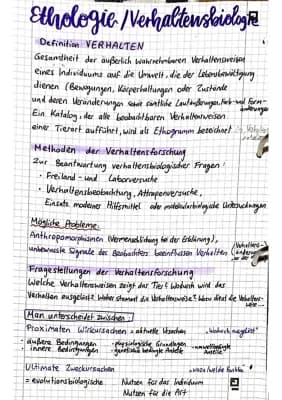 Ethologie / Verhaltensbiologie
Definition VERHALTEN
Gesamtheit der äußerlich wahrnehmbaren Verhaltensweisen
eines Individuums auf die Umwelt, die der Lebensbewältigung
dienen (Bewegungen, Körperhaltungen oder Zustände
und deren Veränderungen sowie sämtliche Lautäußerungen, Farb- und Form-
änderungen
Ein Katalog, der alle beobachtbaren Verhaltensweisen
einer Tierart aufführt, wird als Ethogramm bezeichnet
Methoden der Verhaltensforschung
Zur Beantwortung verhaltensbiologischer Fragen:
• Freiland- und Laborversuche
• Verhaltensbeobachtung, Attrapenversuche,
Einsatz moderner Hilfsmittel oder molekularbiologische Untersuchungen
Mögliche Probleme:
Anthropomorphismen (Vermenschlichung bei der Erklärung),
unbewusste Signale des Beobachters beeinflussen Verhalten
Fragestellungen der Verhaltensforschung
Welche Verhaltensweisen zeigt das Tier? Wodurch wird das
Verhalten ausgelöst? Woher stammt die Verhaltensweise? Wozu dient die Verhaltens-
weise
Man unterscheidet zwischen:
Proximaten Wirkursachen = aktuelle Ursachen
- äußere Bedingungen - physiologische Grundlagen - umweltbedingte
- innere Bedingungen - genetisch bedingte Anteile Anteile
Ultimate Zweckursachen
= evolutionsbiologische Nutzen für das Individuum
Nutzen für die Art